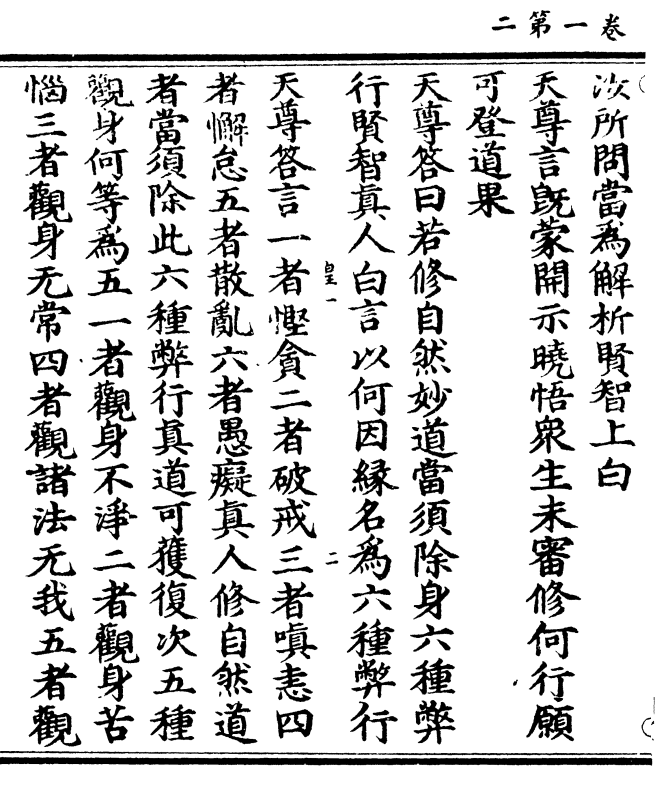 卷一第二
汝所問當為解析賢智上白
天尊言旣蒙開示曉悟衆生未審修何行願
可登道果
天尊答曰若修自然妙道當須除身六種弊
行賢智真人白言以何因緣名為六種弊行
皇一 二
天尊答言一者慳貪二者破戒三者嗔恚四
者懈怠五者散亂六者愚癡真人修自然道
者當須除此六種弊行真道可獲復次五種
觀身何等為五一者觀身不淨二者觀身苦
惱三者觀身无常四者觀諸法无我五者觀